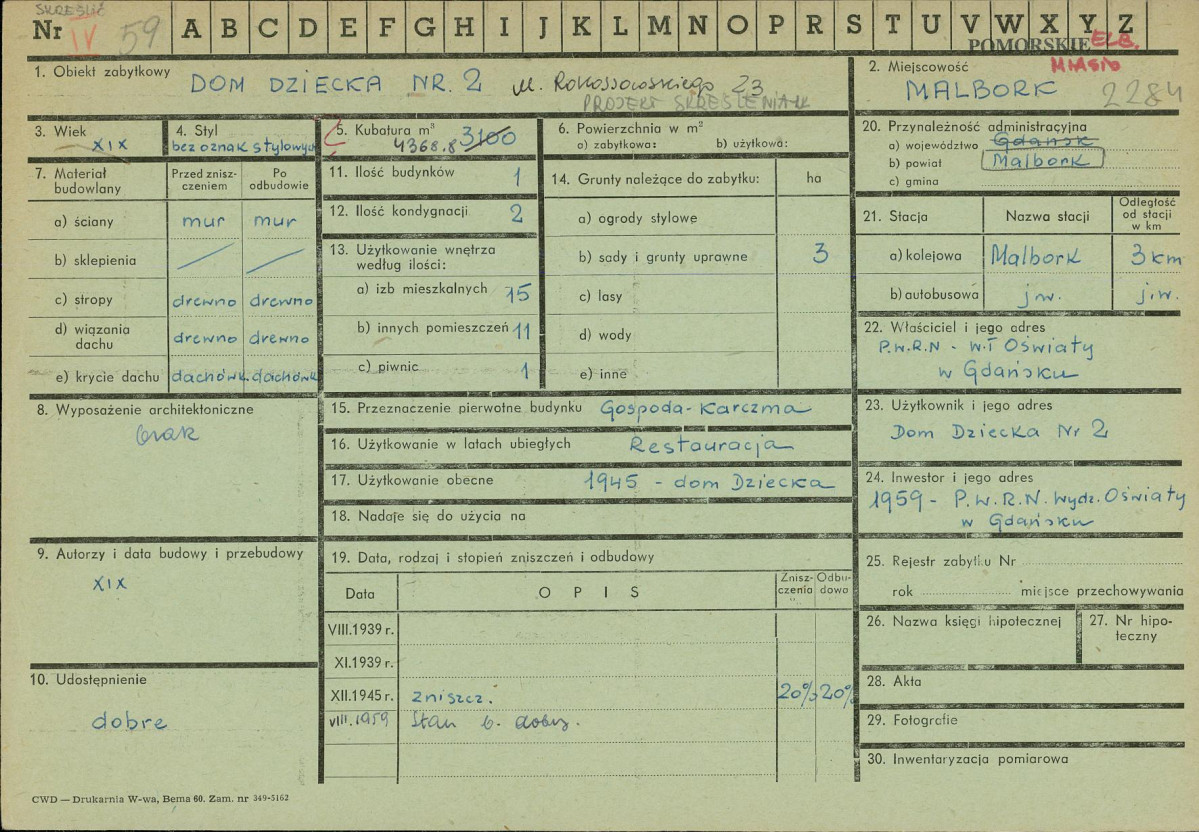 SKREŚLIĆ
Nr IV 59 A B C D E F G H I J K L M N O P R S T U V W X Y Z
POMORSKIE ELB.
MIASTO
1. Obiekt zabytkowy DOM DZIECKA NR. 2 ul. Rokossowskiego 23
PROJEKT SKREŚLENIA
2. Miejscowość
MALBORK 2284
3. Wiek
XIX
4. Styl
bez oznak stylowych
5. Kubatura m³ 3100
4368.8
6. Powierzchnia w m²
a) zabytkowa: b) użytkowa:
20. Przynależność administracyjna
a) województwo Gdańsk
b) powiat Malbork
c) gmina
7. Materiał budowlany
Przed zniszczeniem
Po odbudowie
a) ściany mur mur
b) sklepienia
c) stropy drewno drewno
d) wiązania dachu drewno drewno
e) krycie dachu dachówk. dachówk.
11. Ilość budynków 1
12. Ilość kondygnacji 2
13. Użytkowanie wnętrza
według ilości:
a) izb mieszkalnych 15
b) innych pomieszczeń 11
c) piwnic 1
14. Grunty należące do zabytku: ha
a) ogrody stylowe
b) sady i grunty uprawne 3
c) lasy
d) wody
e) inne
21. Stacja Nazwa stacji Odległość od stacji w km
a) kolejowa Malbork 3 km
b) autobusowa j.w. j.w.
22. Właściciel i jego adres
P.W.R.N - W.ł Oświaty
w Gdańsku
8. Wyposażenie architektoniczne
brak
15. Przeznaczenie pierwotne budynku Gospoda-Karczma
16. Użytkowanie w latach ubiegłych Restauracja
17. Użytkowanie obecne 1945 - dom Dziecka
18. Nadaje się do użycia na
23. Użytkownik i jego adres
Dom Dziecka Nr 2
24. Inwestor i jego adres
1959 - P.W.R.N. Wydz. Oświaty
w Gdańsku
9. Autorzy i data budowy i przebudowy
XIX
19. Data, rodzaj i stopień zniszczeń i odbudowy
Data OPIS Zniszczenia Odbudowa
VIII.1939 r.
XI.1939 r.
XII.1945 r. zniszcz. 20% 20%
VIII.1959 Stan b. dobry.
25. Rejestr zabytku Nr
rok miejsce przechowywania
26. Nazwa księgi hipotecznej
27. Nr hipoteczny
10. Udostępnienie
dobre
28. Akta
29. Fotografie
30. Inwentaryzacja pomiarowa
CWD — Drukarnia W-wa, Bema 60. Zam. nr 349-5162